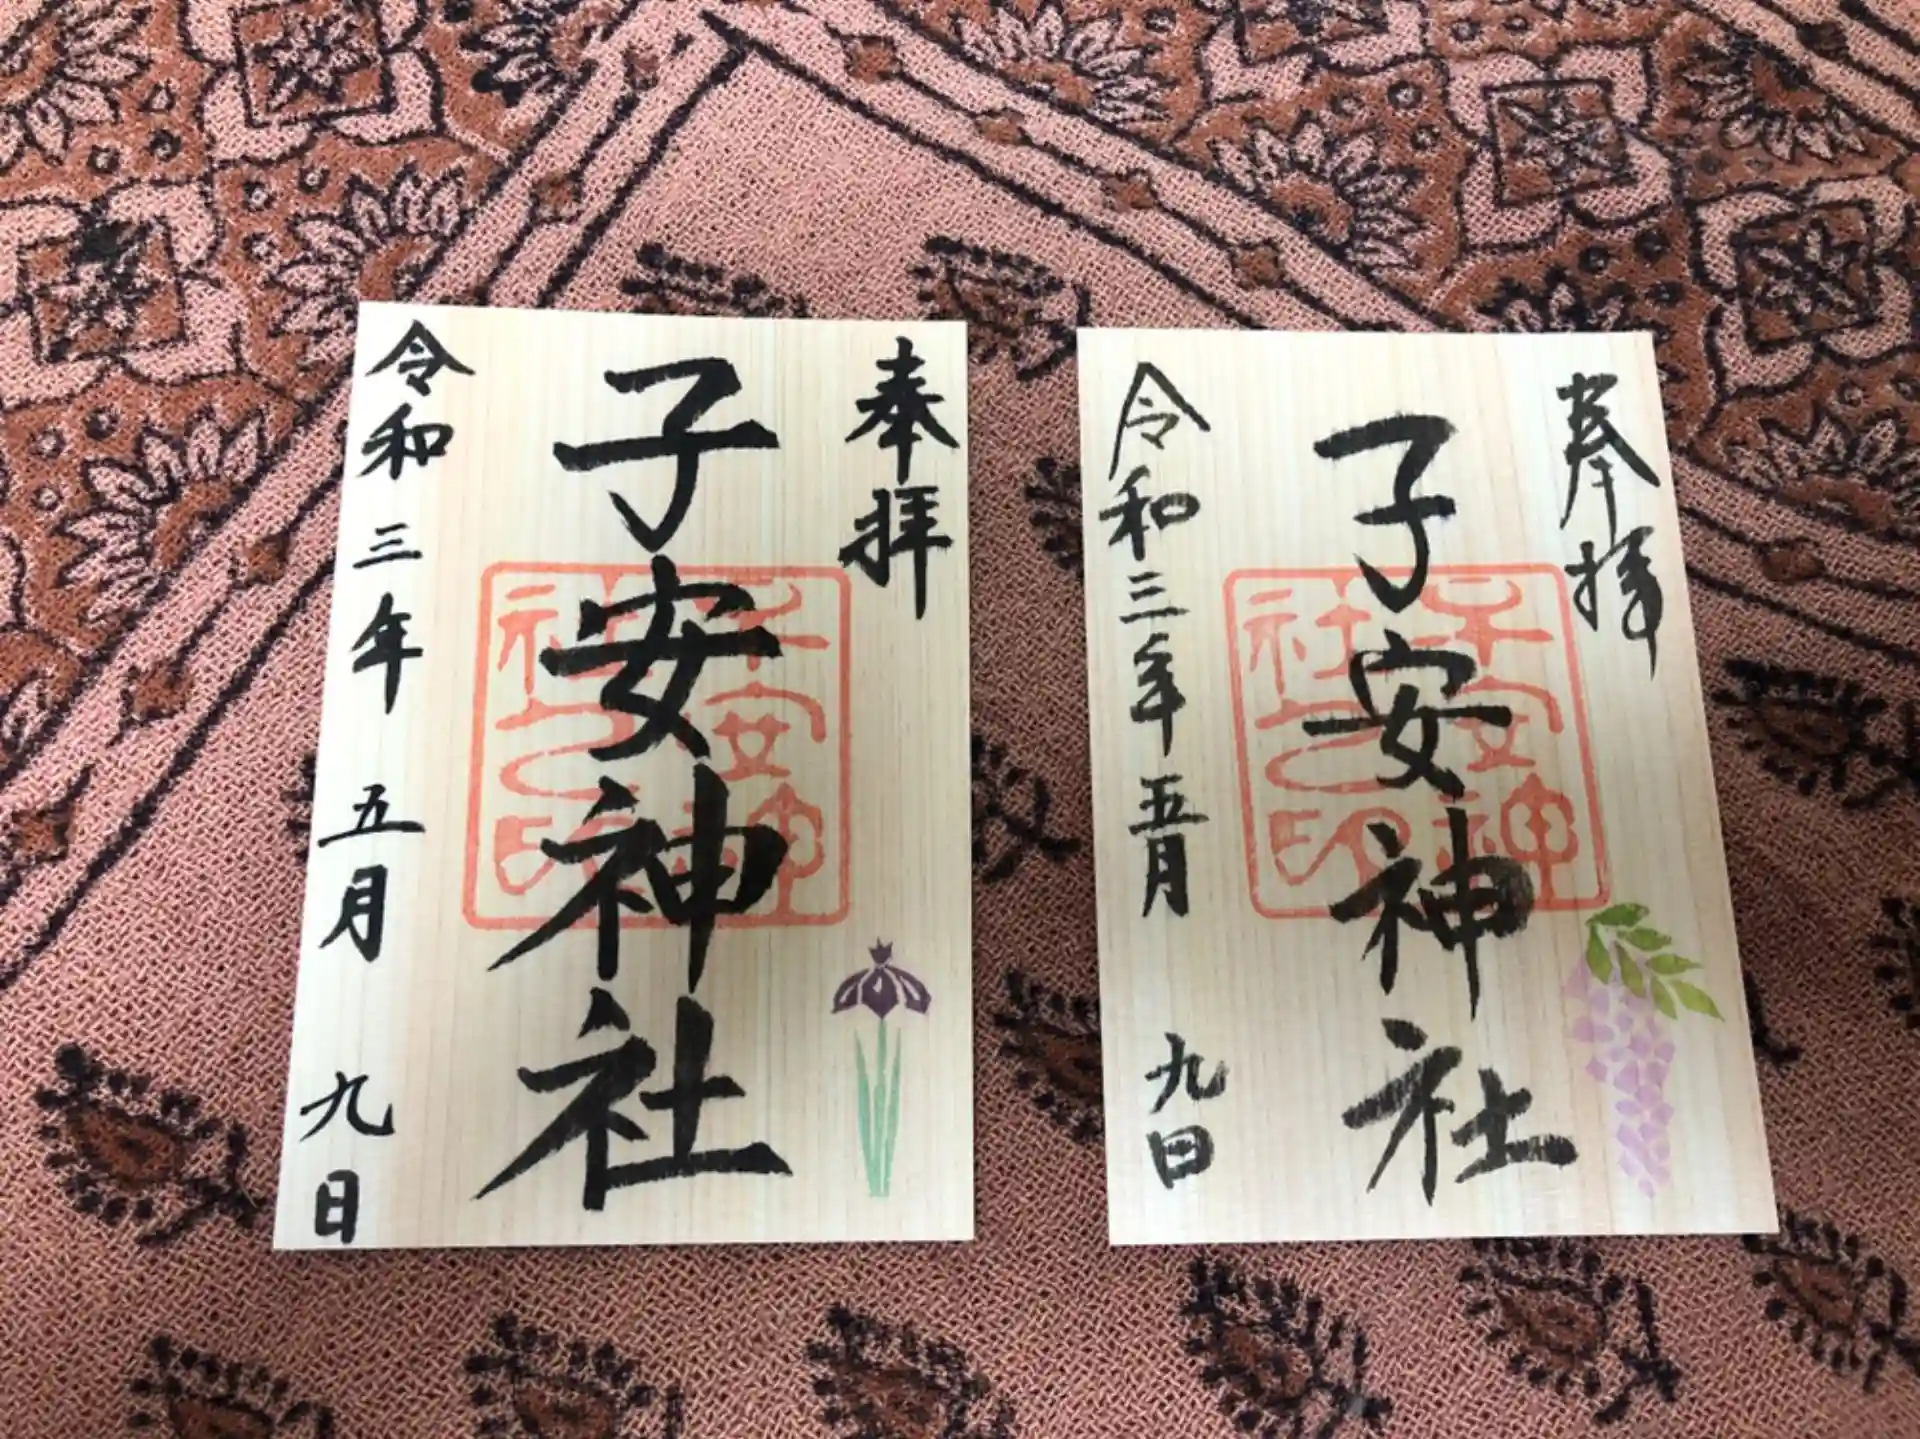 奉拝
子安神社
子安神
社之印
令和三年五月九日
奉拝
子安神社
子安神
社之印
令和三年五月九日